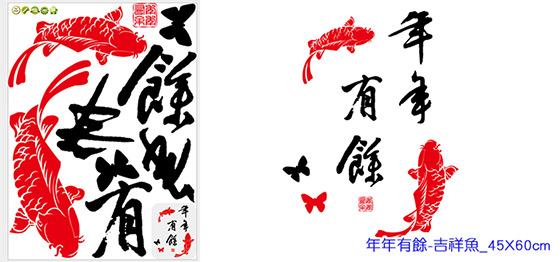 餘
年
年
有
年年
有餘
年年
有餘
年年有餘-吉祥魚_45X60cm